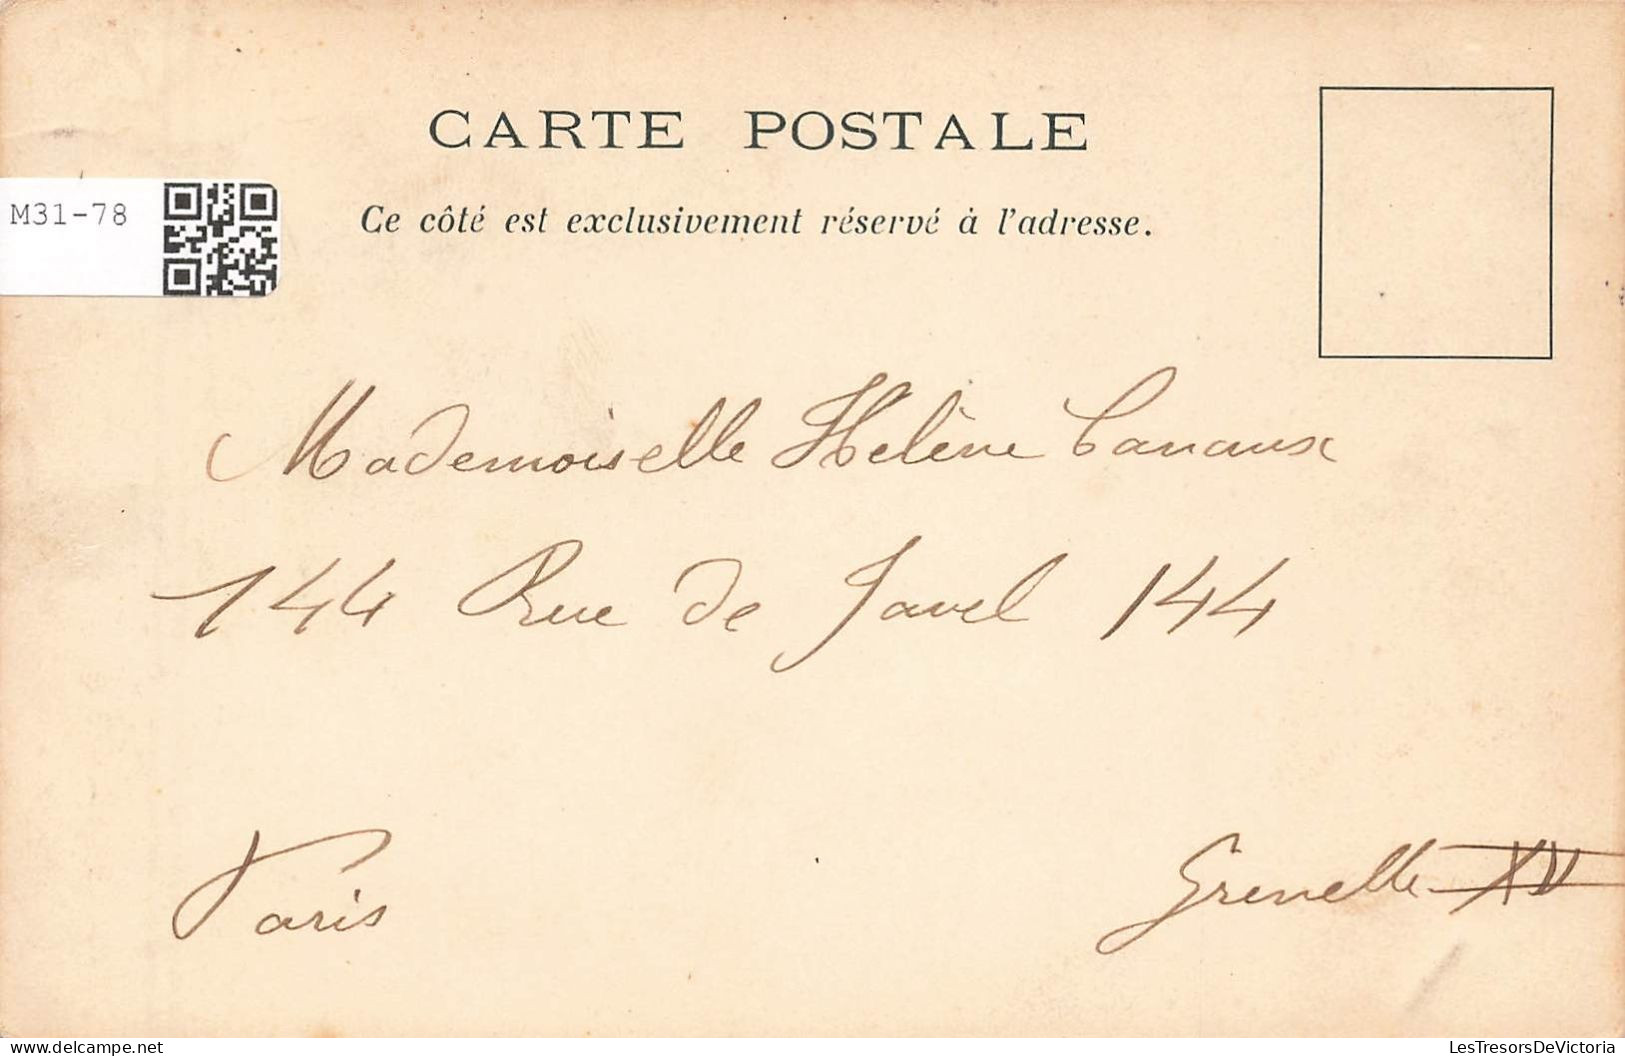 CARTE POSTALE
M31-78
Ce côté est exclusivement réservé à l'adresse.
Mademoiselle Helène Canaux
144 Rue de Javel 144
Paris
Grenelle XV
LesTresorsDeVictoria